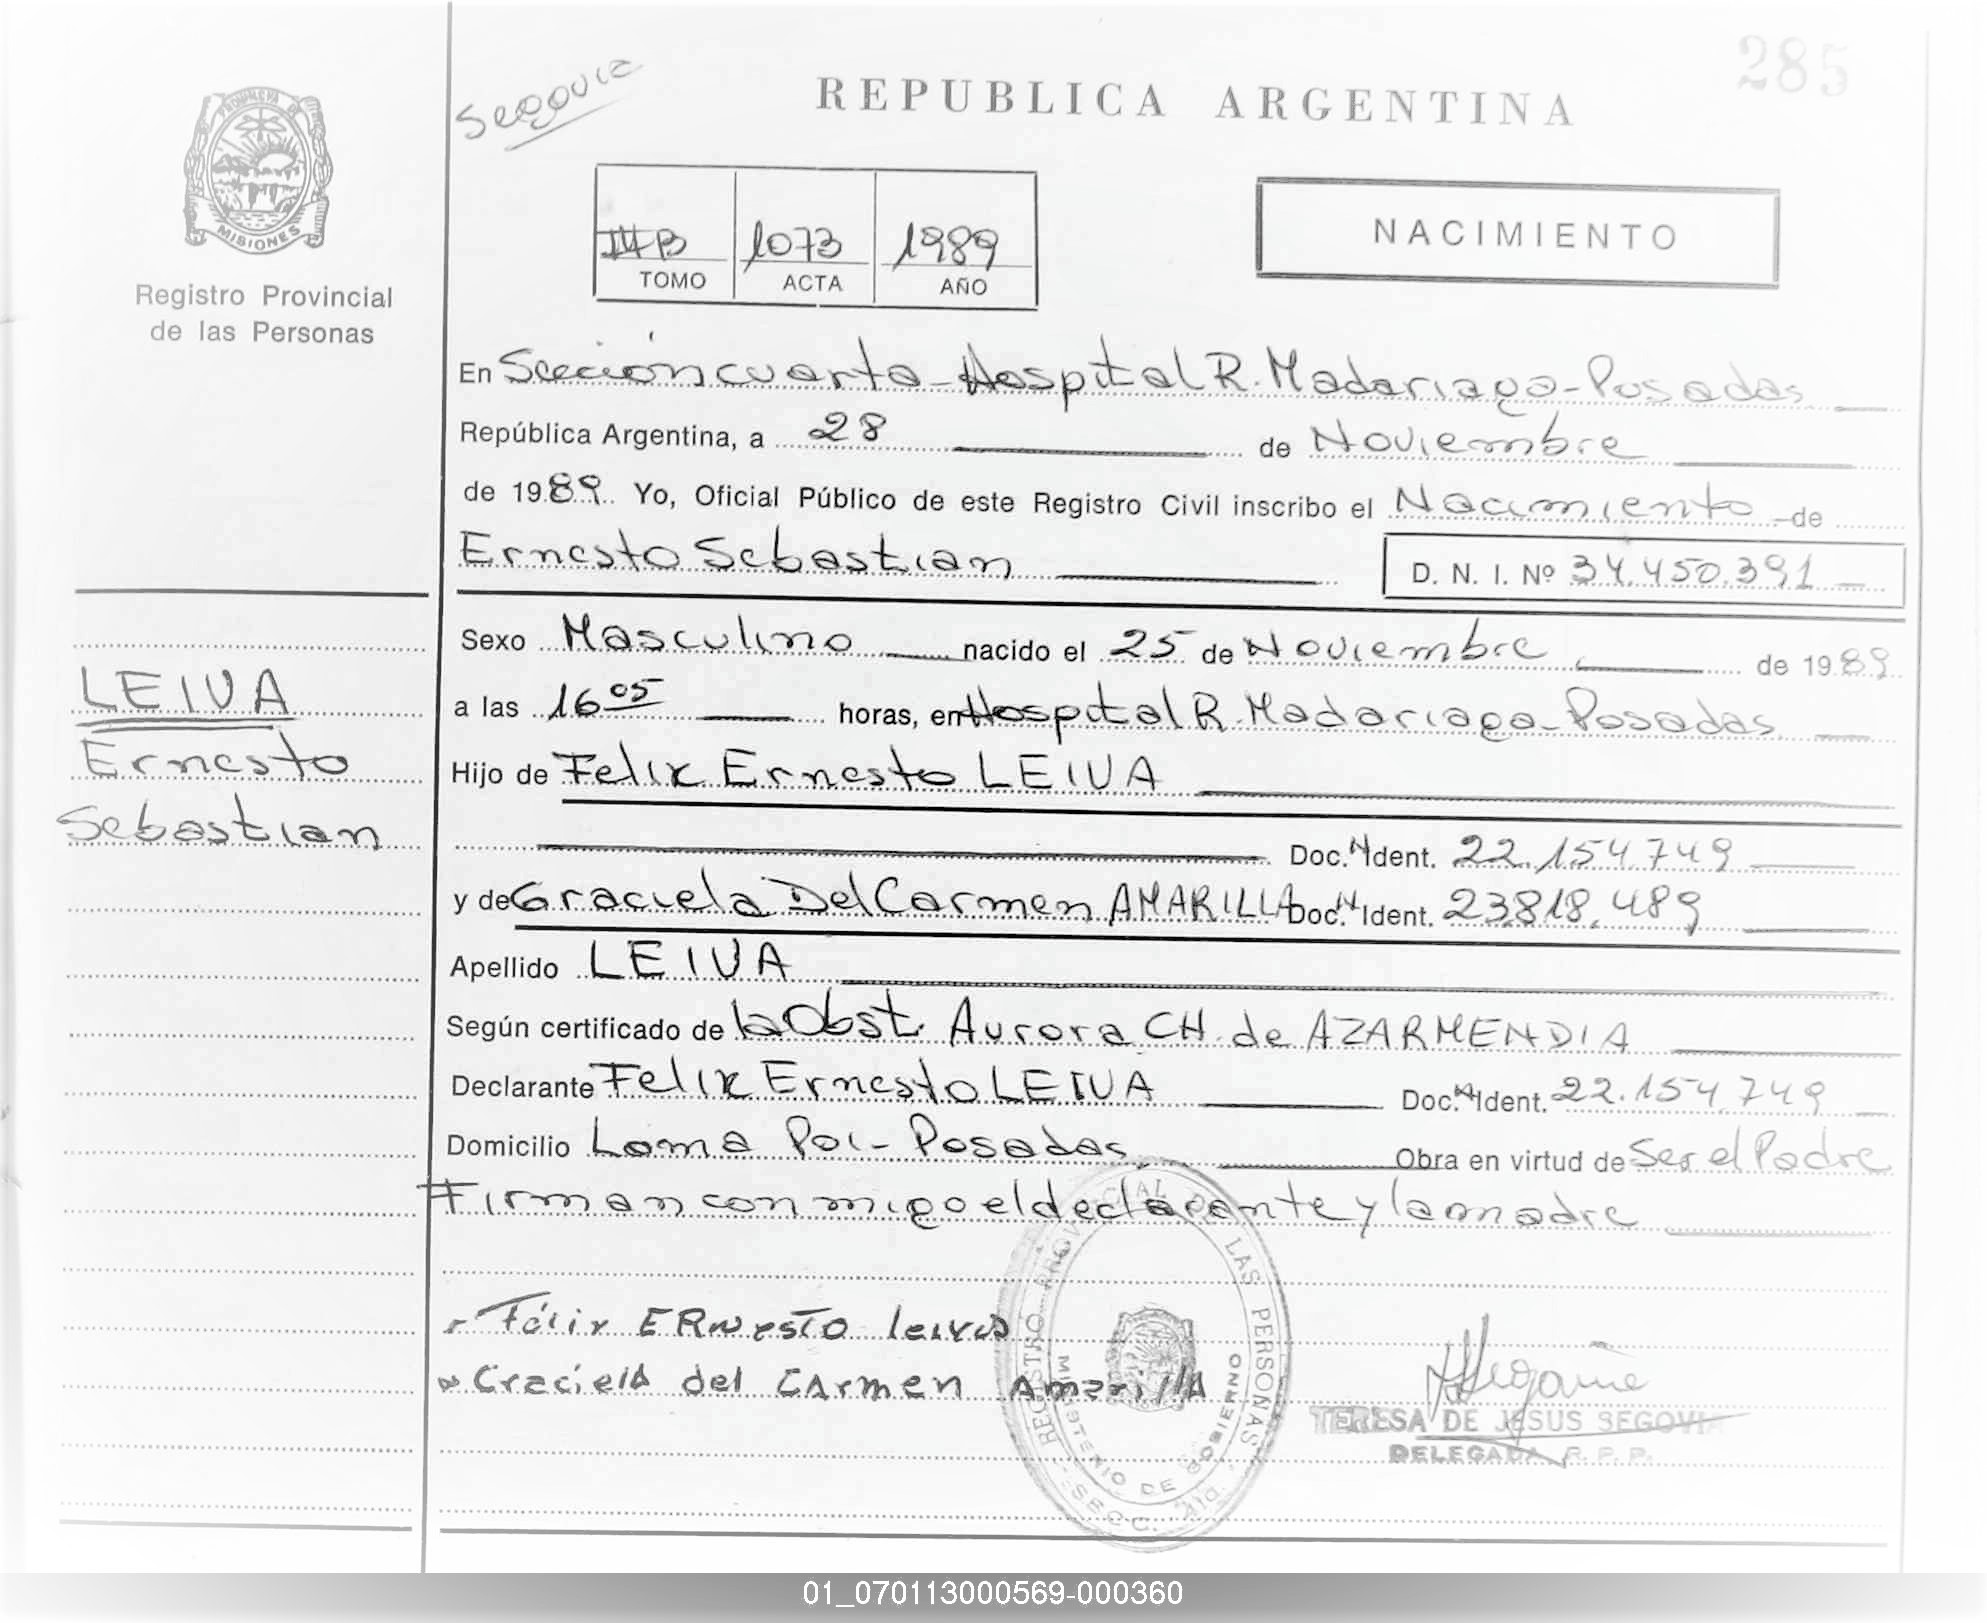 285
Segovia
REPUBLICA ARGENTINA
PROVINCIA DE
MISIONES
Registro Provincial
de las Personas
1073 1989
TOMO ACTA AÑO
NACIMIENTO
En Sección cuarta - Hospital R. Madariaga - Posadas
República Argentina, a 28 de Noviembre
de 1989. Yo, Oficial Público de este Registro Civil inscribo el Nacimiento de
Ernesto Sebastian D. N. I. Nº 34.450.391
LEIVA
Ernesto
Sebastian
Sexo Masculino nacido el 25 de Noviembre de 1989
a las 16 05 horas, en Hospital R. Madariaga - Posadas
Hijo de Felix Ernesto LEIVA
Doc. N Ident. 22.154.749
y de Graciela Del Carmen AMARILLA Doc. N Ident. 23.818.489
Apellido LEIVA
Según certificado de la Obst. Aurora CH. de AZARMENDIA
Declarante Felix Ernesto LEIVA Doc. N Ident. 22.154.749
Domicilio Loma Poi - Posadas Obra en virtud de Ser el Padre
Firman conmigo el declarante y la madre
Félix ERNESTO leiva
Graciela del CArmen AmarillA
REGISTRO PROVINCIAL DE LAS PERSONAS
MINISTERIO DE GOBIERNO
TERESA DE JESUS SEGOVIA
DELEGADA R. P. P.
01_070113000569-000360